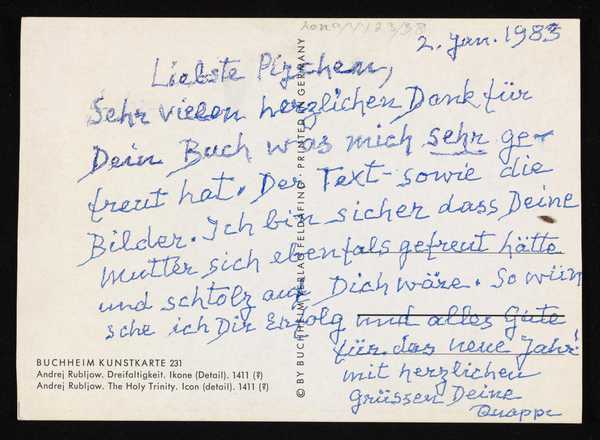 2. Jan. 1983
Liebste
Sehr vielen herzlichen Dank für
Dein Buch was mich sehr ge-
freut hat. Der Text - sowie die
Bilder. Ich bin sicher dass Deine
Mutter sich ebenfals gefreut hätte
und schtolz auf Dich wäre. So wün
sche ich Dir Erfolg und alles Gute
für das neue Jahr!
mit herzlichen
Grüssen Deine
Quappe
© BY BUCHHEIM VERLAG FELDAFING · PRINTED IN GERMANY
BUCHHEIM KUNSTKARTE 231
Andrej Rubljow. Dreifaltigkeit. Ikone (Detail). 1411 (?)
Andrej Rubljow. The Holy Trinity. Icon (detail). 1411 (?)